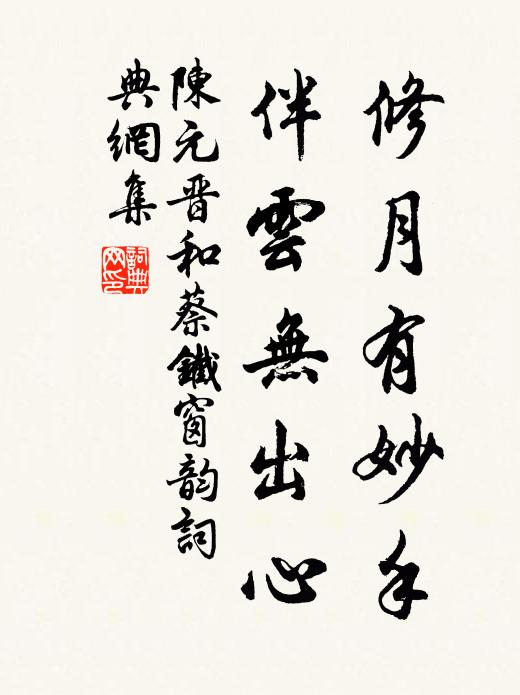 修月有妙手
伴雲無出心
陳元晋和蔡鐵窗韵詞
典網集
詞典
网印